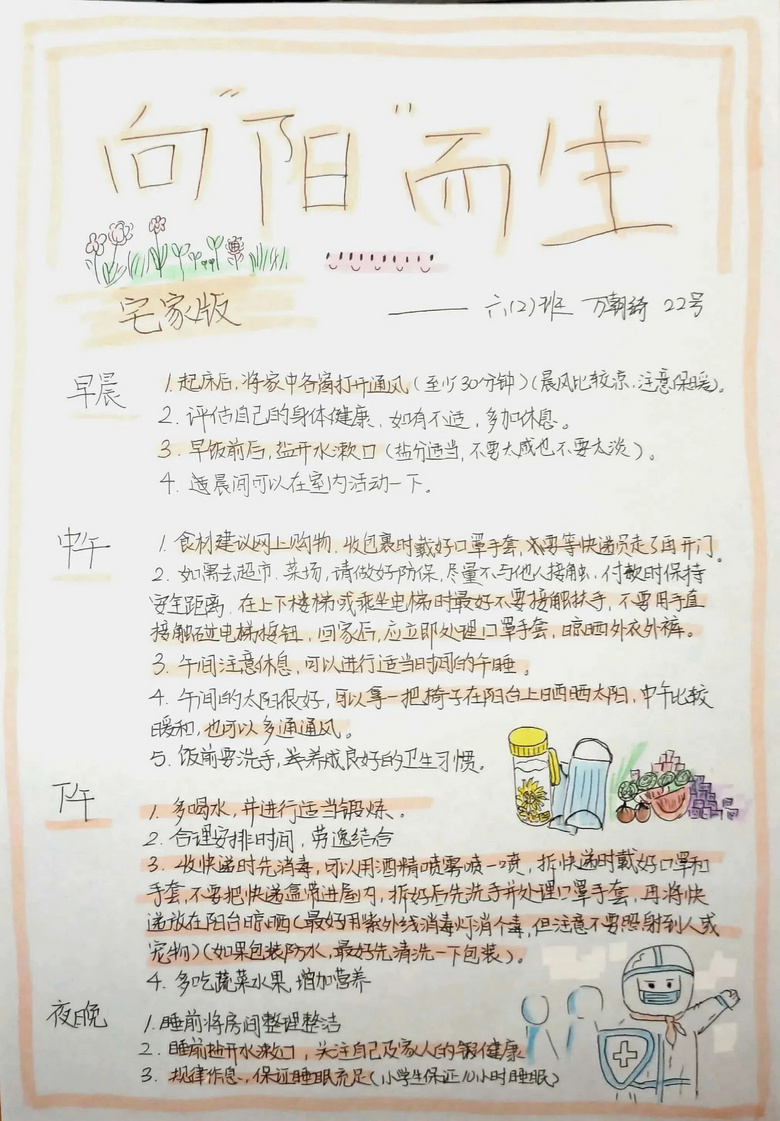 向“阳”而生
宅家版
—— 六(2)班 万朝绮 22号
早晨
1.起床后,将家中各窗打开通风(至少30分钟)(晨风比较凉,注意保暖)。
2.评估自己的身体健康,如有不适,多加休息。
3.早饭前后,盐开水漱口(盐分适当,不要太咸也不要太淡)。
4.造晨间可以在室内活动一下。
中午
1.食材建议网上购物.收包裹时戴好口罩手套,要等快递员走了再开门。
2.如需去超市.菜场,请做好防保,尽量不与他人接触.付款时保持
安全距离.在上下楼梯或乘坐电梯时最好不要接触扶手,不要用手直
接触碰电梯按钮,回家后,应立即处理口罩手套,晾晒外衣外裤。
3.午间注意休息,可以进行适当时间的午睡。
4.午间的太阳很好,可以拿一把椅子在阳台上晒晒太阳,中午比较
暖和,也可以多通通风。
5.饭前要洗手,养成良好的卫生习惯。
下午
1.多喝水,并进行适当锻炼。
2.合理安排时间,劳逸结合
3.收快递时先消毒,可以用酒精喷雾喷一喷,拆快递时戴好口罩和
手套,不要把快递盒带进屋内,拆好后先洗手并处理口罩手套,再将快
递放在阳台晾晒(最好用紫外线消毒灯消个毒,但注意不要照射到人或
宠物)(如果包装防水,最好先清洗一下包装)。
4.多吃蔬菜水果,增加营养
夜晚
1.睡前将房间整理整洁
2.睡前盐开水漱口,关注自己及家人的健康
3.规律作息,保证睡眠充足(小学生保证10小时睡眠)